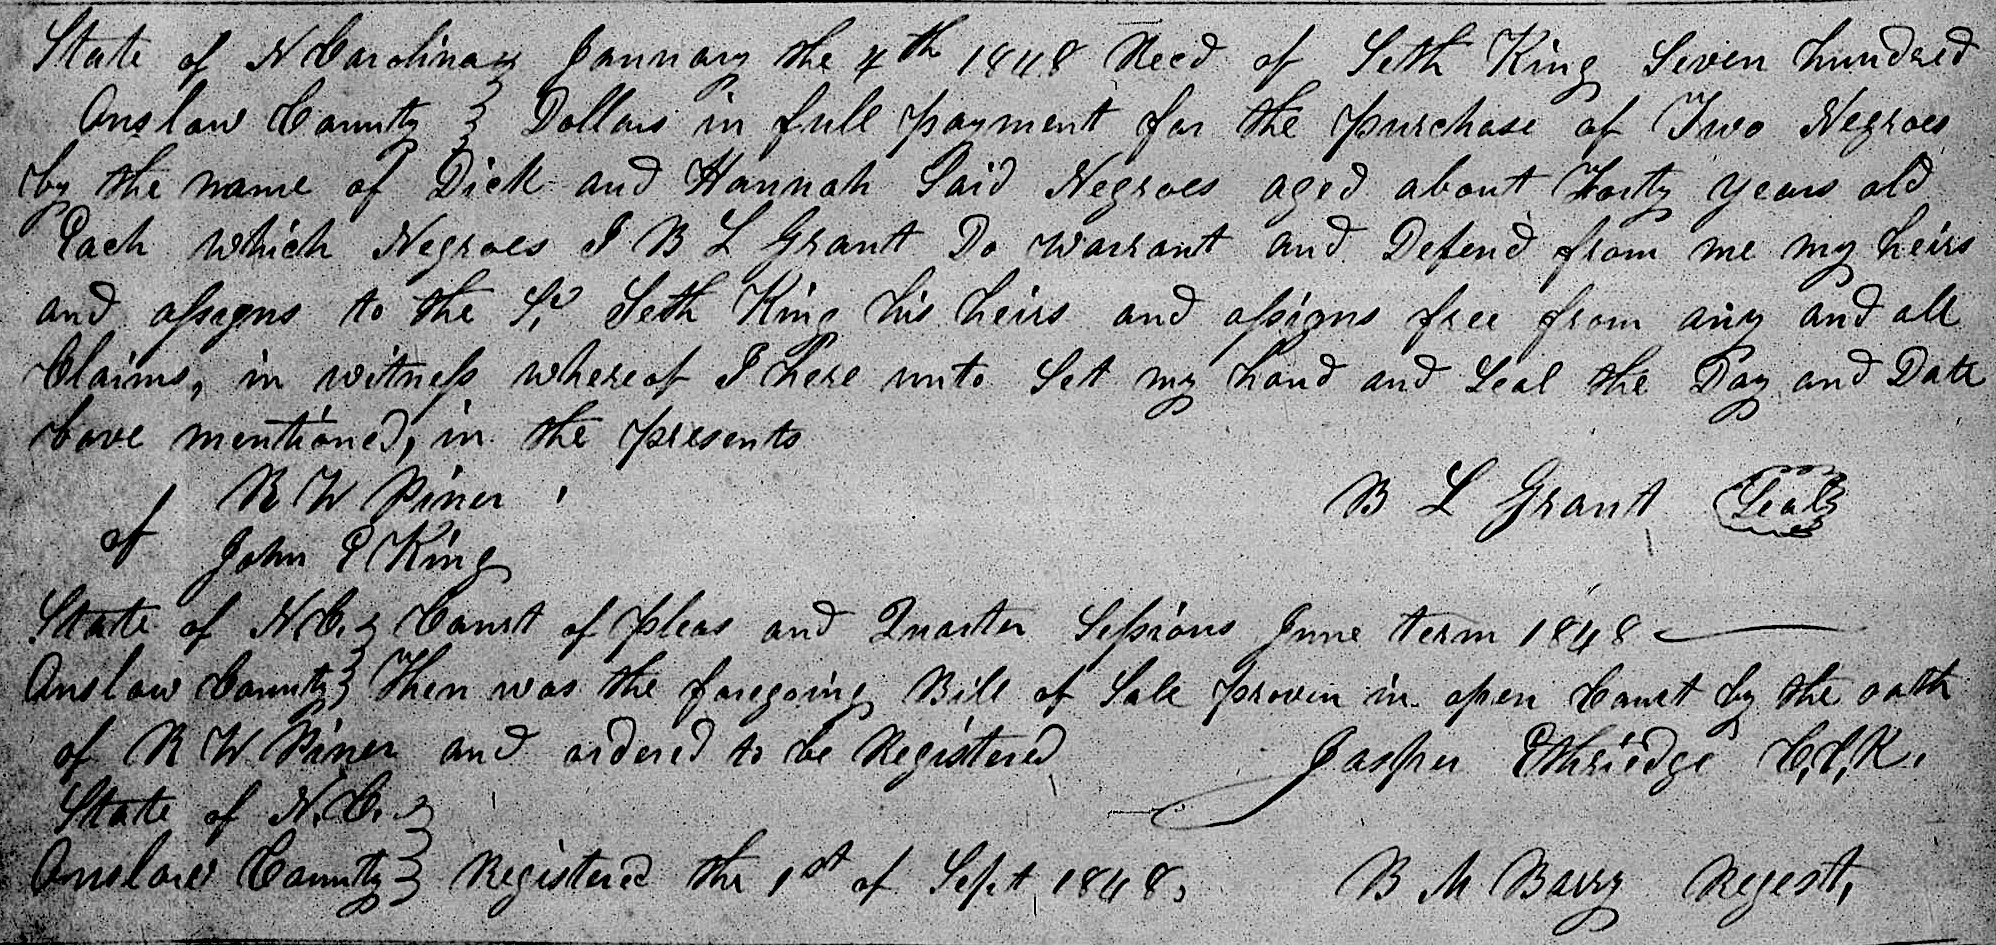 State of N Carolina } January the 4th 1848 Recd of Seth King Seven hundred
Onslow County } Dollars in full payment for the purchase of Two Negroes
by the name of Dick and Hannah Said Negroes aged about Forty years old
Each which Negroes I B L Grant Do warrant and Defend from me my heirs
and assigns to the Sd Seth King his heirs and assigns free from any and all
Claims, in witness whereof I here unto Set my hand and Seal the Day and Date
bove mentioned, in the presents
of R W Piner
John E King
B L Grant Seal
State of N.C. } Court of pleas and Quarter Sessions June term 1848
Onslow County } Then was the foregoing Bill of Sale proven in open Court by the oath
of R W Piner and ordered to be Registered Jasper Ethriedge C,C,K,
State of N.C. }
Onslow County } Registered the 1st of Sept 1848, B M Barry Regest,